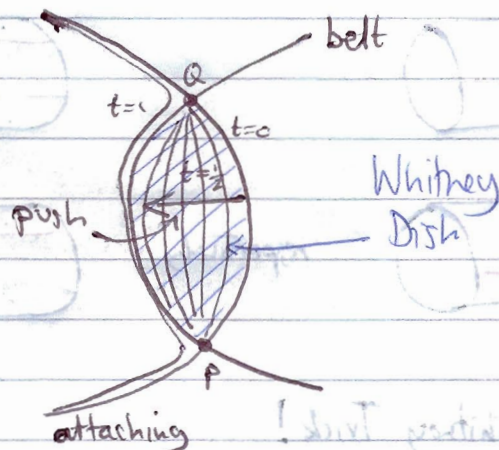 belt
Q
t=1
t=0
t=½
Whitney
Disk
push
P
attaching